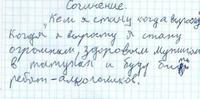 Сочинение.
"Кем я стану когда вырасту"
Когда я вырасту я стану
огромным, здоровым мужиком
в татупал и буду бить
ребят-алкоголиков.